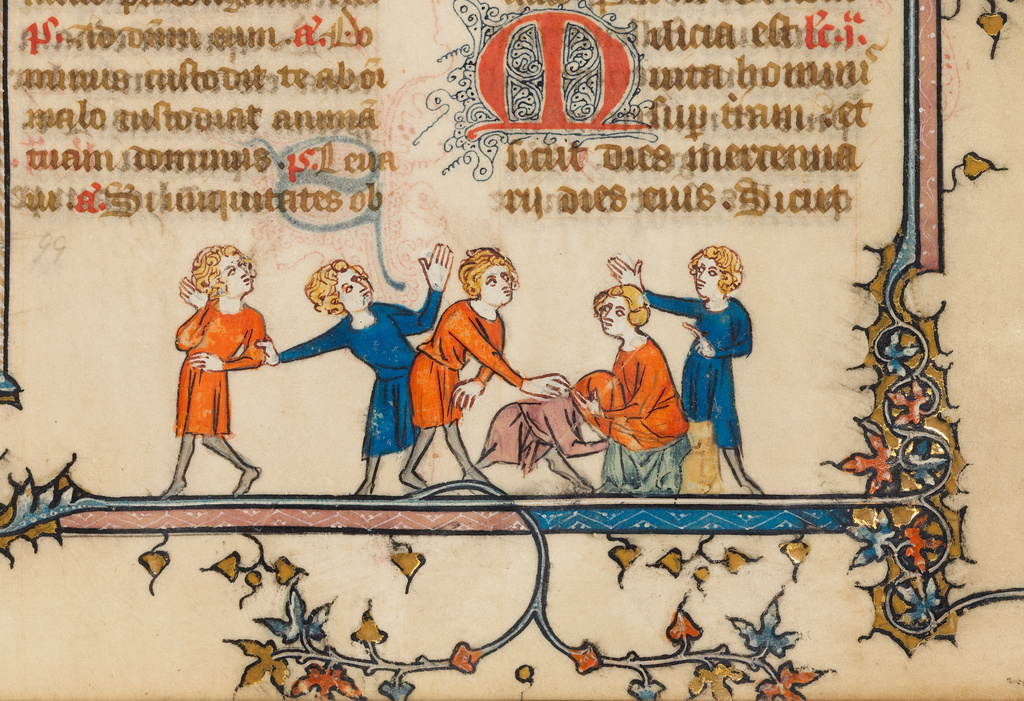 p̄. Ad dm̄m cum. a̅. Do
minus custodit te ab oī
malo custodiat animā
tuam dominus. p̄. Leua
ui. a̅. Si iniquitates ob
Milicia est lc̄.j.
uita homini
sup t̄ram. et
sicut dies mercenna
rij dies eius. Sicut
99